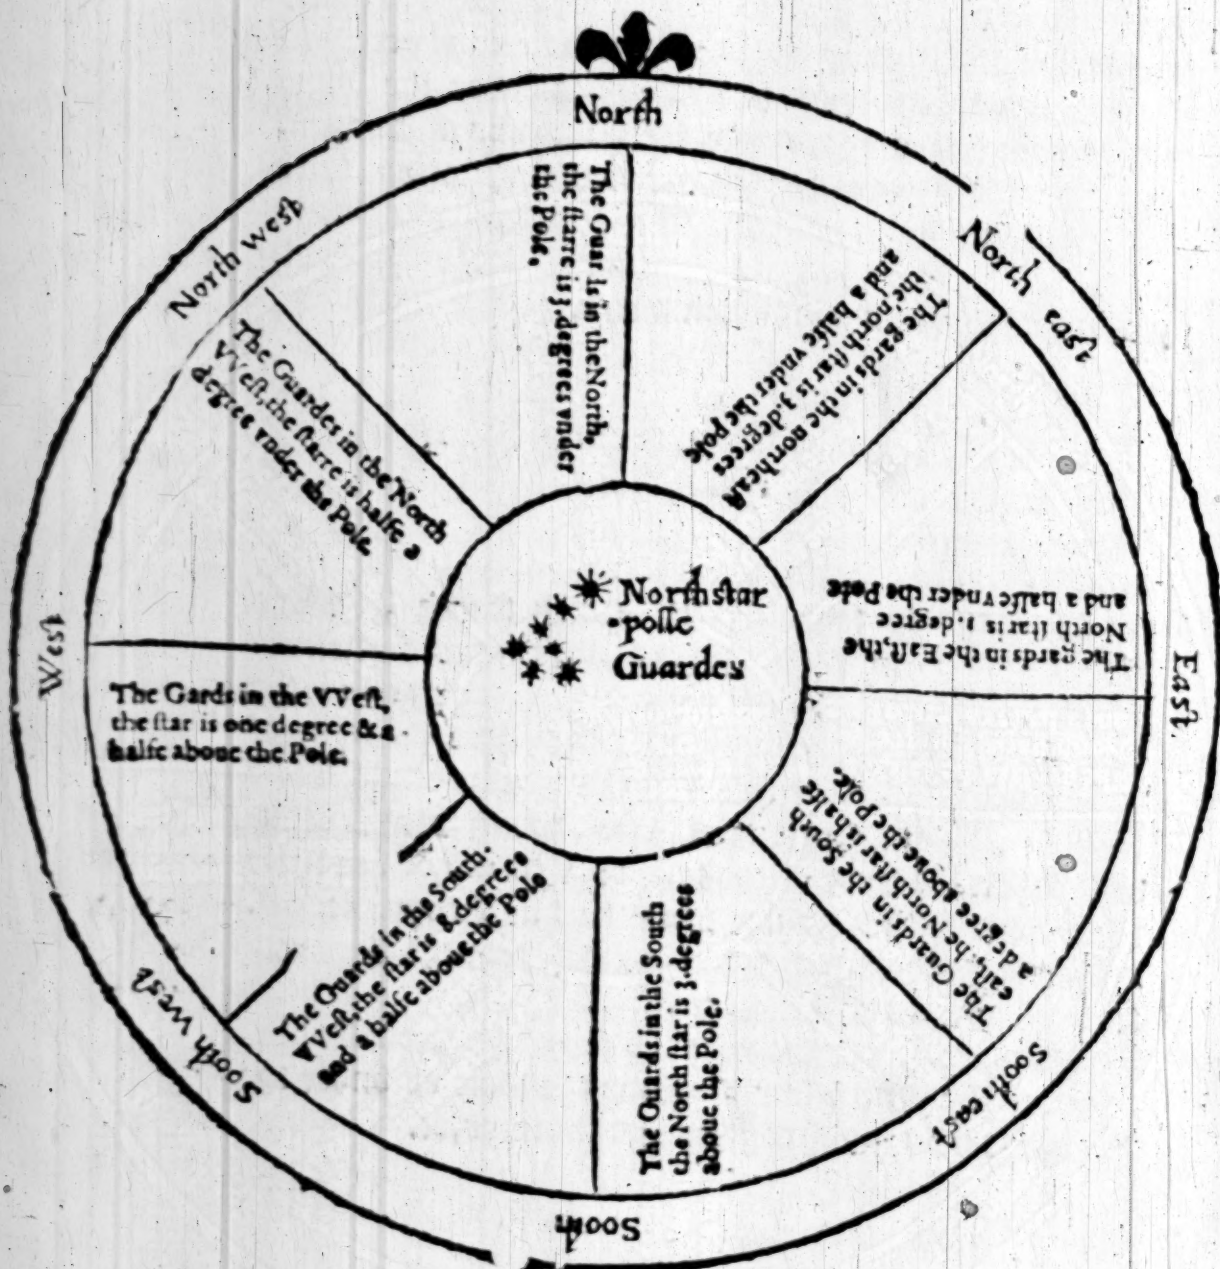 North
The Guar is in the North,
the ſtarre is 3. degrees vnder
the Pole.
North east
The gards in the northeaſt
the north ſtar is 3. degrees
and a halfe vnder the pole
East
The gards in the Eaſt, the
North ſtar is 1. degree
and a halfe vnder the Pole
South east
The Guards in the South
eaſt, the North ſtar is halfe
a degree aboue the Pole.
South
The Guards in the South
the North ſtar is 3. degrees
aboue the Pole.
South west
The Guards in the South-
VVeſt, the ſtar is &. degrees
and a halfe aboue the Pole
West
The Gards in the VVeſt,
the ſtar is one degree & a
halfe aboue the Pole.
North west
The Guardes in the North
VVeſt, the ſtarre is halfe a
degree vnder the Pole.
North star
polle
Guardes